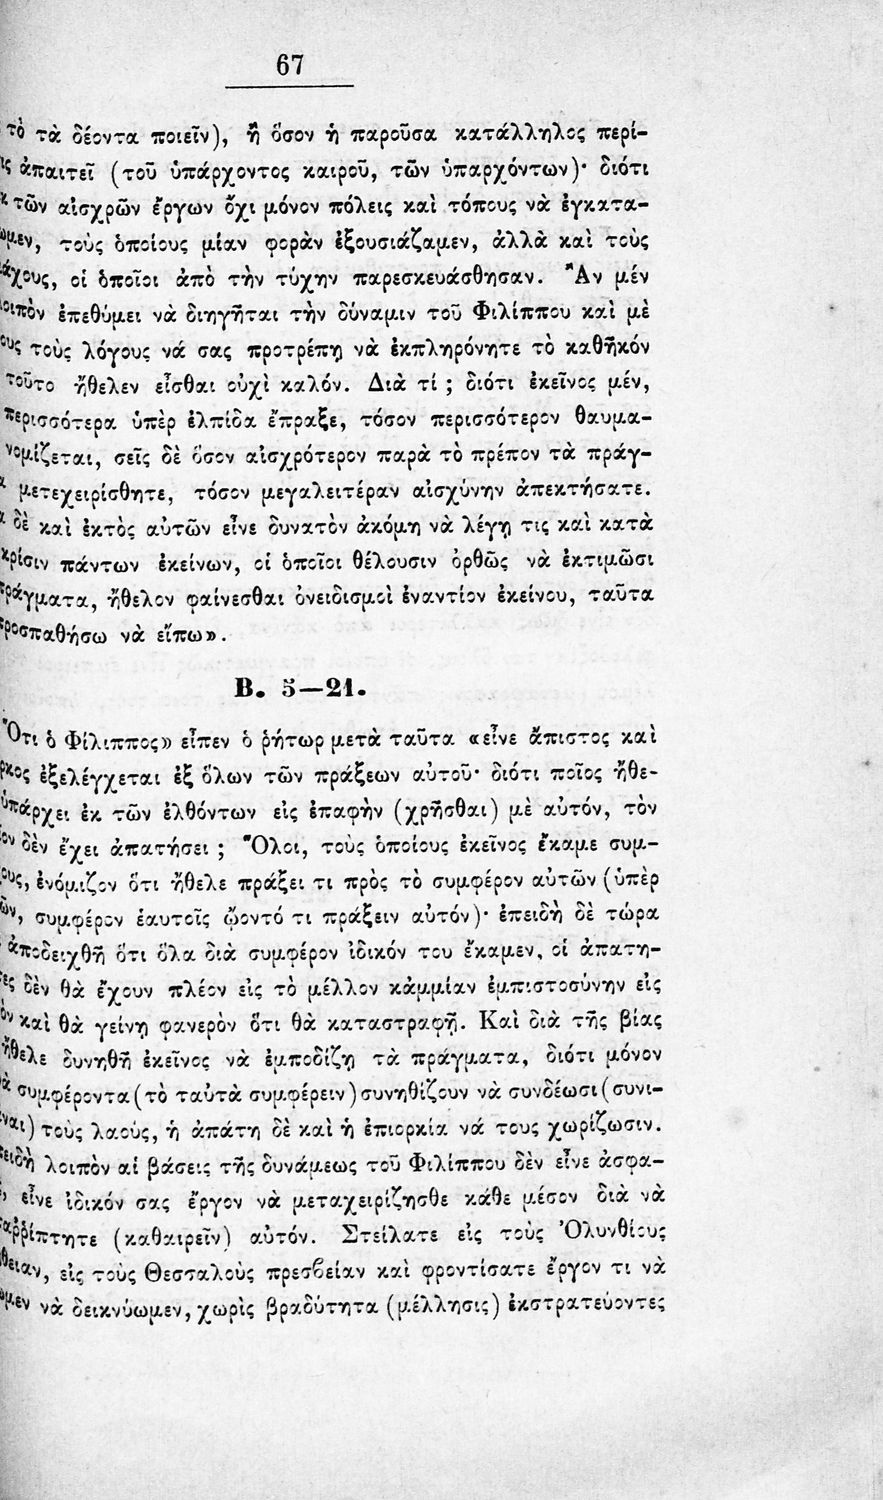 67
τὸ τὰ δέοντα ποιεῖν), ἢ ὅσον ἡ παροῦσα κατάλληλος περί-
ις ἀπαιτεῖ (τοῦ ὑπάρχοντος καιροῦ, τῶν ὑπαρχόντων)· διότι
κ τῶν αἰσχρῶν ἔργων ὄχι μόνον πόλεις καὶ τόπους νὰ ἐγκατα-
ωμεν, τοὺς ὁποίους μίαν φορὰν ἐξουσιάζαμεν, ἀλλὰ καὶ τοὺς
άχους, οἱ ὁποῖοι ἀπὸ τὴν τύχην παρεσκευάσθησαν. Ἂν μέν
οιπὸν ἐπεθύμει νὰ διηγῆται τὴν δύναμιν τοῦ Φιλίππου καὶ μὲ
ους τοὺς λόγους νά σας προτρέπῃ νὰ ἐκπληρόνητε τὸ καθῆκόν
τοῦτο ἤθελεν εἶσθαι οὐχὶ καλόν. Διὰ τί ; διότι ἐκεῖνος μέν,
περισσότερα ὑπὲρ ἐλπίδα ἔπραξε, τόσον περισσότερον θαυμα-
νομίζεται, σεῖς δὲ ὅσον αἰσχρότερον παρὰ τὸ πρέπον τὰ πράγ-
α μετεχειρίσθητε, τόσον μεγαλειτέραν αἰσχύνην ἀπεκτήσατε.
α δὲ καὶ ἐκτὸς αὐτῶν εἶνε δυνατὸν ἀκόμη νὰ λέγῃ τις καὶ κατὰ
κρίσιν πάντων ἐκείνων, οἱ ὁποῖοι θέλουσιν ὀρθῶς νὰ ἐκτιμῶσι
πράγματα, ἤθελον φαίνεσθαι ὀνειδισμοὶ ἐναντίον ἐκείνου, ταῦτα
προσπαθήσω νὰ εἴπω».
Β. 5—21.
Ὅτι ὁ Φίλιππος» εἶπεν ὁ ῥήτωρ μετὰ ταῦτα «εἶνε ἄπιστος καὶ
ρκος ἐξελέγχεται ἐξ ὅλων τῶν πράξεων αὐτοῦ· διότι ποῖος ἤθε-
ὑπάρχει ἐκ τῶν ἐλθόντων εἰς ἐπαφὴν (χρῆσθαι) μὲ αὐτόν, τὸν
ον δὲν ἔχει ἀπατήσει ; Ὅλοι, τοὺς ὁποίους ἐκεῖνος ἔκαμε συμ-
ους, ἐνόμιζον ὅτι ἤθελε πράξει τι πρὸς τὸ συμφέρον αὐτῶν (ὑπὲρ
ῶν, συμφέρον ἑαυτοῖς ᾤοντό τι πράξειν αὐτόν)· ἐπειδὴ δὲ τώρα
ἀποδειχθῆ ὅτι ὅλα διὰ συμφέρον ἰδικόν του ἔκαμεν, οἱ ἀπατη-
ες δὲν θὰ ἔχουν πλέον εἰς τὸ μέλλον κἀμμίαν ἐμπιστοσύνην εἰς
ὸν καὶ θὰ γείνῃ φανερὸν ὅτι θὰ καταστραφῇ. Καὶ διὰ τῆς βίας
ἤθελε δυνηθῆ ἐκεῖνος νὰ ἐμποδίζῃ τὰ πράγματα, διότι μόνον
ὰ συμφέροντα (τὸ ταὐτὰ συμφέρειν) συνηθίζουν νὰ συνδέωσι (συνι-
ναι) τοὺς λαούς, ἡ ἀπάτη δὲ καὶ ἡ ἐπιορκία νά τους χωρίζωσιν.
ειδὴ λοιπὸν αἱ βάσεις τῆς δυνάμεως τοῦ Φιλίππου δὲν εἶνε ἀσφα-
, εἶνε ἰδικόν σας ἔργον νὰ μεταχειρίζησθε κάθε μέσον διὰ νὰ
αῤῥίπτητε (καθαιρεῖν) αὐτόν. Στείλατε εἰς τοὺς Ὀλυνθίους
θειαν, εἰς τοὺς Θεσσαλοὺς πρεσβείαν καὶ φροντίσατε ἔργον τι νὰ
ωμεν νὰ δεικνύωμεν, χωρὶς βραδύτητα (μέλλησις) ἐκστρατεύοντες